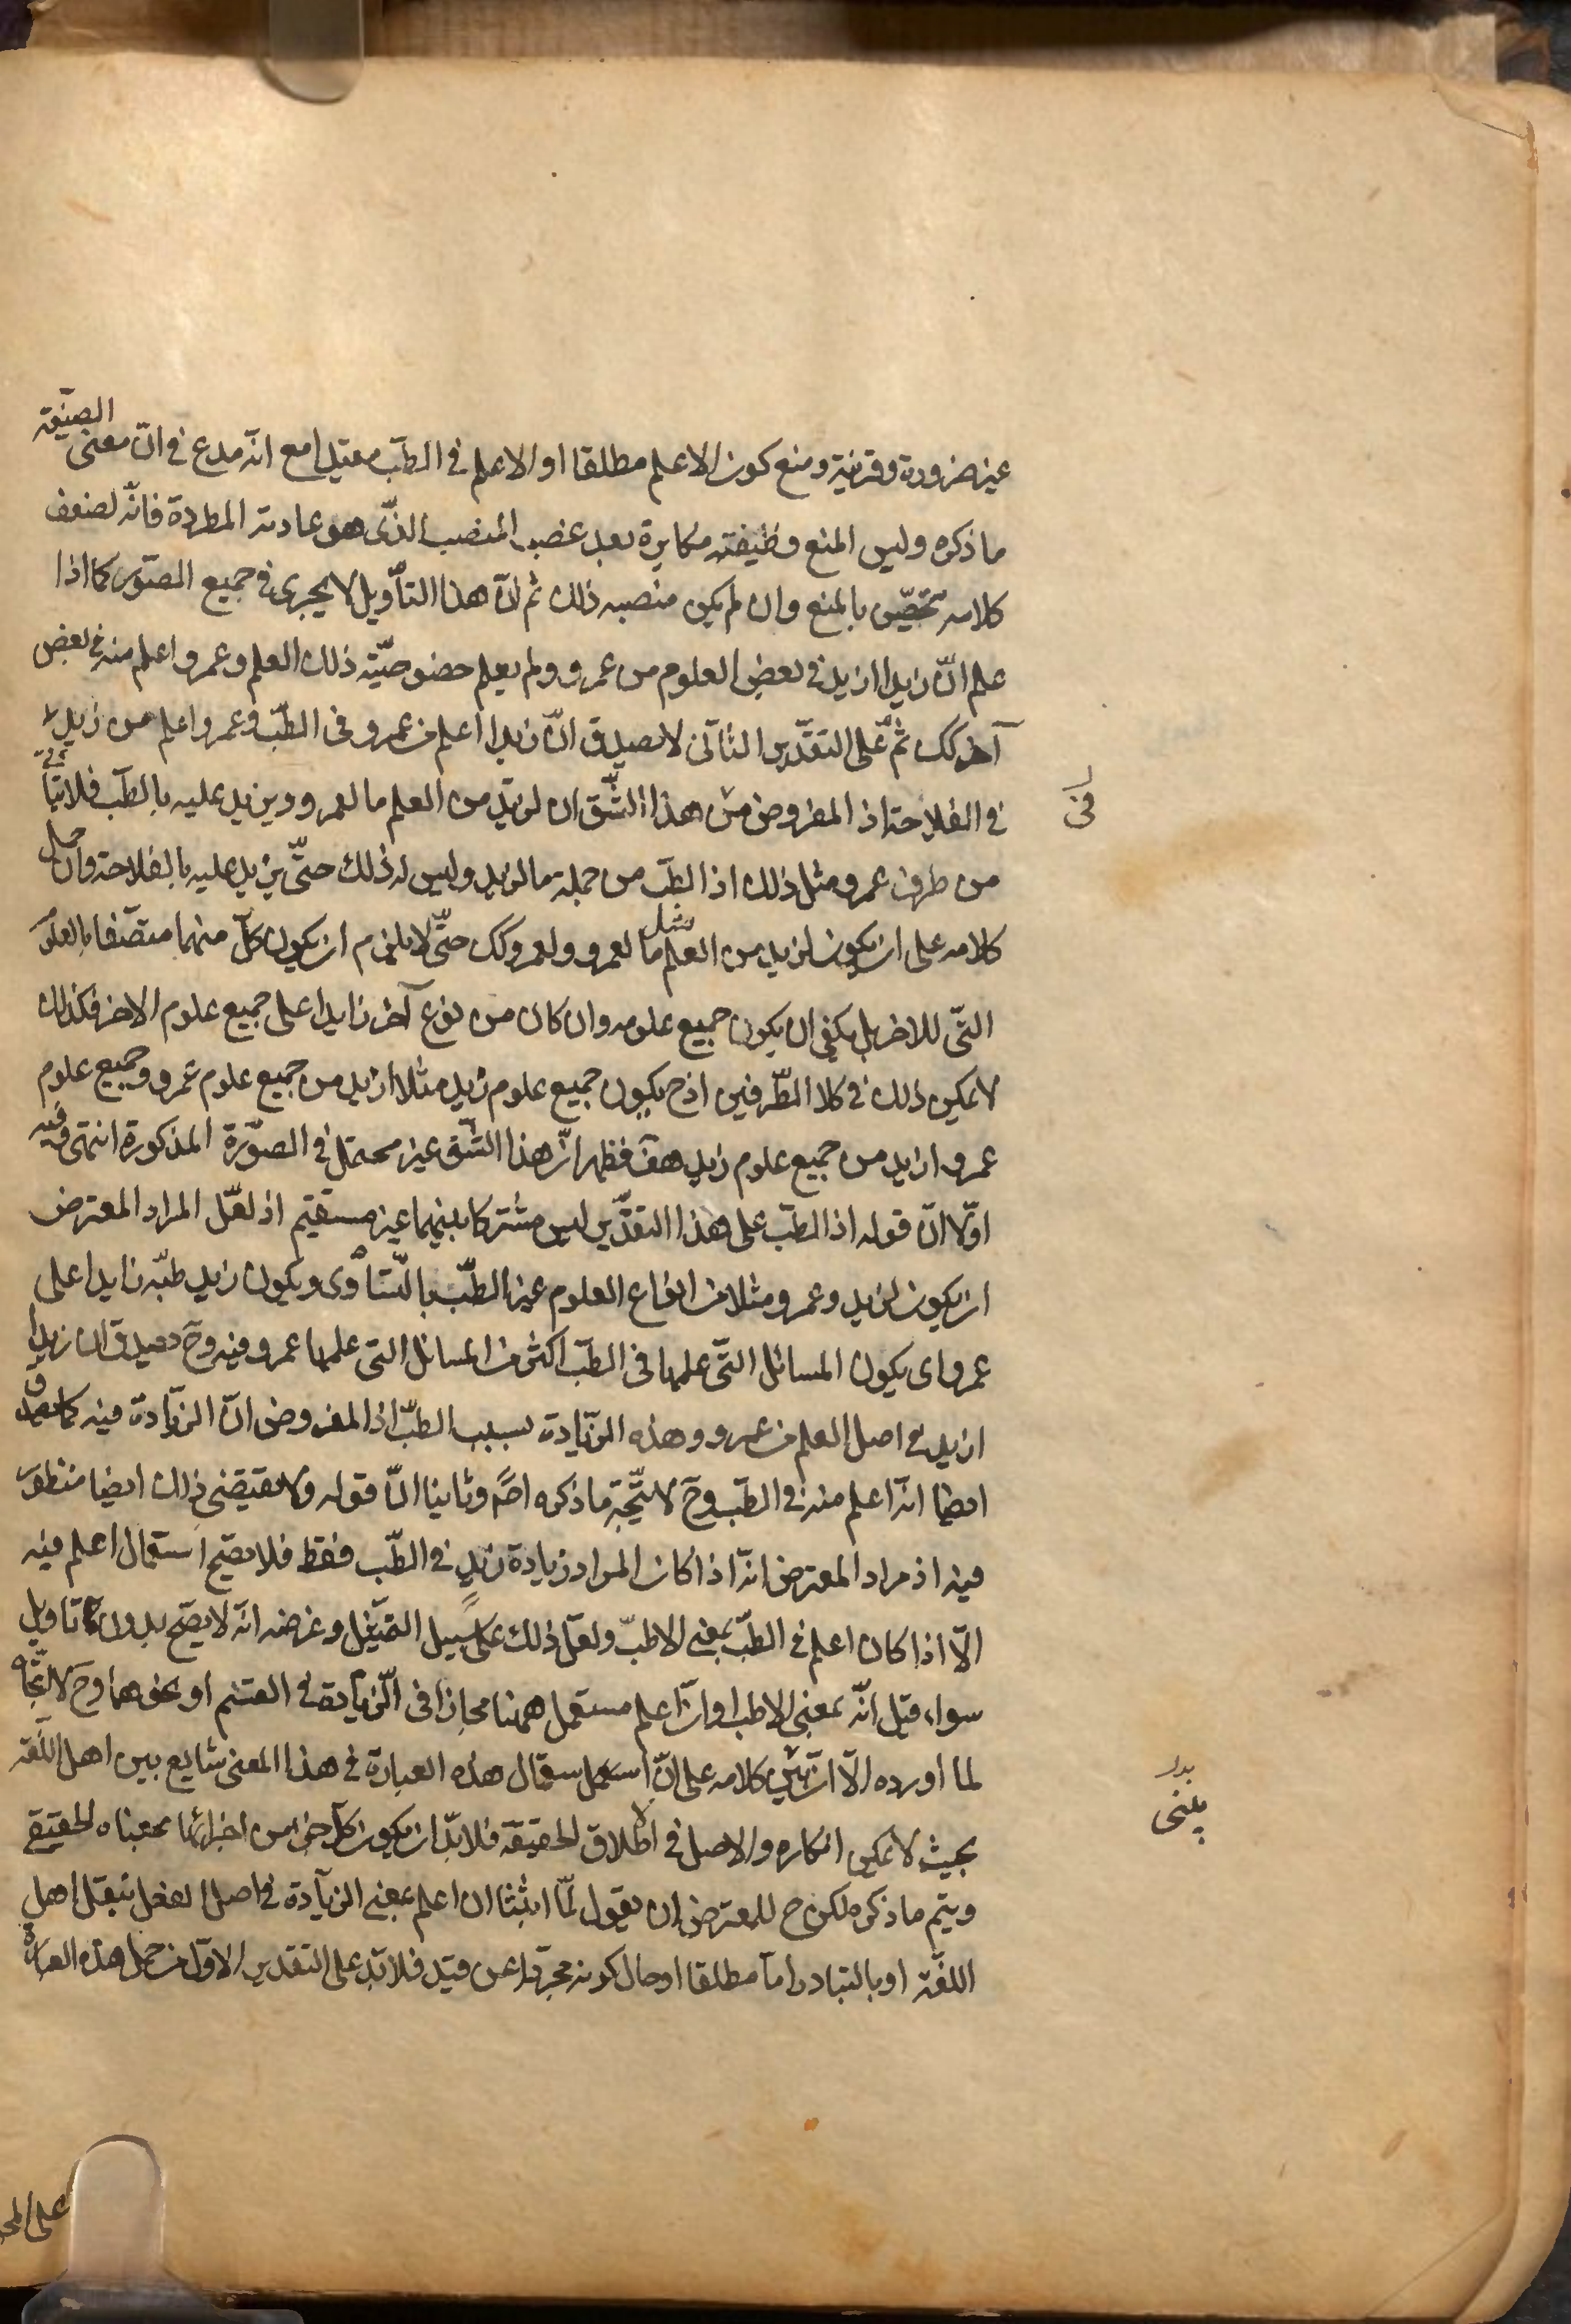 غير ضرورة وقرينة ومنع كون الاعلم مطلقا او الاعلم في الطب مقيدا مع انه مدع في ان معنى الصيغة
ما ذكره وليس المنع وظيفته مكابرة بعد غصب المنصب الذي هو عادته المطردة فانه لضعف
كلامه تحصن بالمنع وان لم يكن منصبه ذلك ثم ان هذا التأويل لا يجرى في جميع الصور كما اذا
علم ان زيدا ازيد في بعض العلوم من عمرو ولم يعلم خصوصية ذلك العلم وعمرو اعلم منه في بعض
آخر كك ثم على التقدير الثاني لا يصدق ان زيدا اعلم من عمرو في الطب وعمرو اعلم من زيد
في الفلاحة اذ المفروض من هذا الشق ان لزيد من العلم ما لعمرو ويزيد عليه بالطب فلا يتأتى
في
من طرف عمرو مثل ذلك اذ الطب من جملة ما لزيد وليس له ذلك حتى يزيد عليه بالفلاحة وان حمل
كلامه على ان يكون لزيد من العلم مثل ما لعمرو ولعمرو كك حتى لا يلزم ان يكون كل منهما متصفا بالعلوم
التي للاخر بل يكفي ان يكون جميع علومه وان كان من نوع آخر زايدا على جميع علوم الاخر فكذلك
لا يمكن ذلك في كلا الطرفين اذ ح يكون جميع علوم زيد مثلا ازيد من جميع علوم عمرو وجميع علوم
عمرو ازيد من جميع علوم زيد هف فظهر ان هذا الشق غير محتمل في الصورة المذكورة انتهى وفيه
اولا ان قوله اذ الطب على هذا التقدير ليس مشتركا بينهما غير مستقيم اذ لعل المراد المعترض
ان يكون لزيد وعمرو مثلا من انواع العلوم غير الطب بالتساوى ويكون زيد طبه زايدا على
عمرو اى يكون المسائل التي علمها في الطب اكثر من المسائل التي علمها عمرو فيه وح يصدق ان زيدا
ازيد في اصل العلم من عمرو وهذه الزيادة بسبب الطب اذ المفروض ان الزيادة فيه كما يصدق
ايضا انه اعلم منه في الطب وح لا يتجه ما ذكره اصلا وثانيا ان قوله ولا مقتضى ذلك ايضا منظور
فيه اذ مراد المعترض انه اذا كان المراد زيادة زيد في الطب فقط فلا يصح استعمال اعلم فيه
الا اذا كان اعلم في الطب بمعنى الاطب ولعل ذلك على سبيل التمثيل وغرضه انه لا يصح بدون تاويل
سواء قيل انه بمعنى الاطب او ان اعلم مستعمل ههنا مجازا في الزيادة في القسم او نحوهما وح لا اتجاه
لما اورده الا ان يبنى كلامه على ان استعمال هذه العبارة في هذا المعنى شايع بين اهل اللغة
بدل
يبنى
بحيث لا يمكن انكاره والاصل في الاطلاق الحقيقة فلا بد ان يكون كل جزء من اجزائها بمعناه الحقيقى
ويتم ما ذكره لكن ح للمعترض ان يقول لما اثبتنا ان اعلم بمعنى الزيادة في اصل الفعل بنقل اهل
اللغة او بالتبادر اما مطلقا او حال كونه مجردا عن قيد فلا بد على التقدير الاول من حمل هذه العبارة